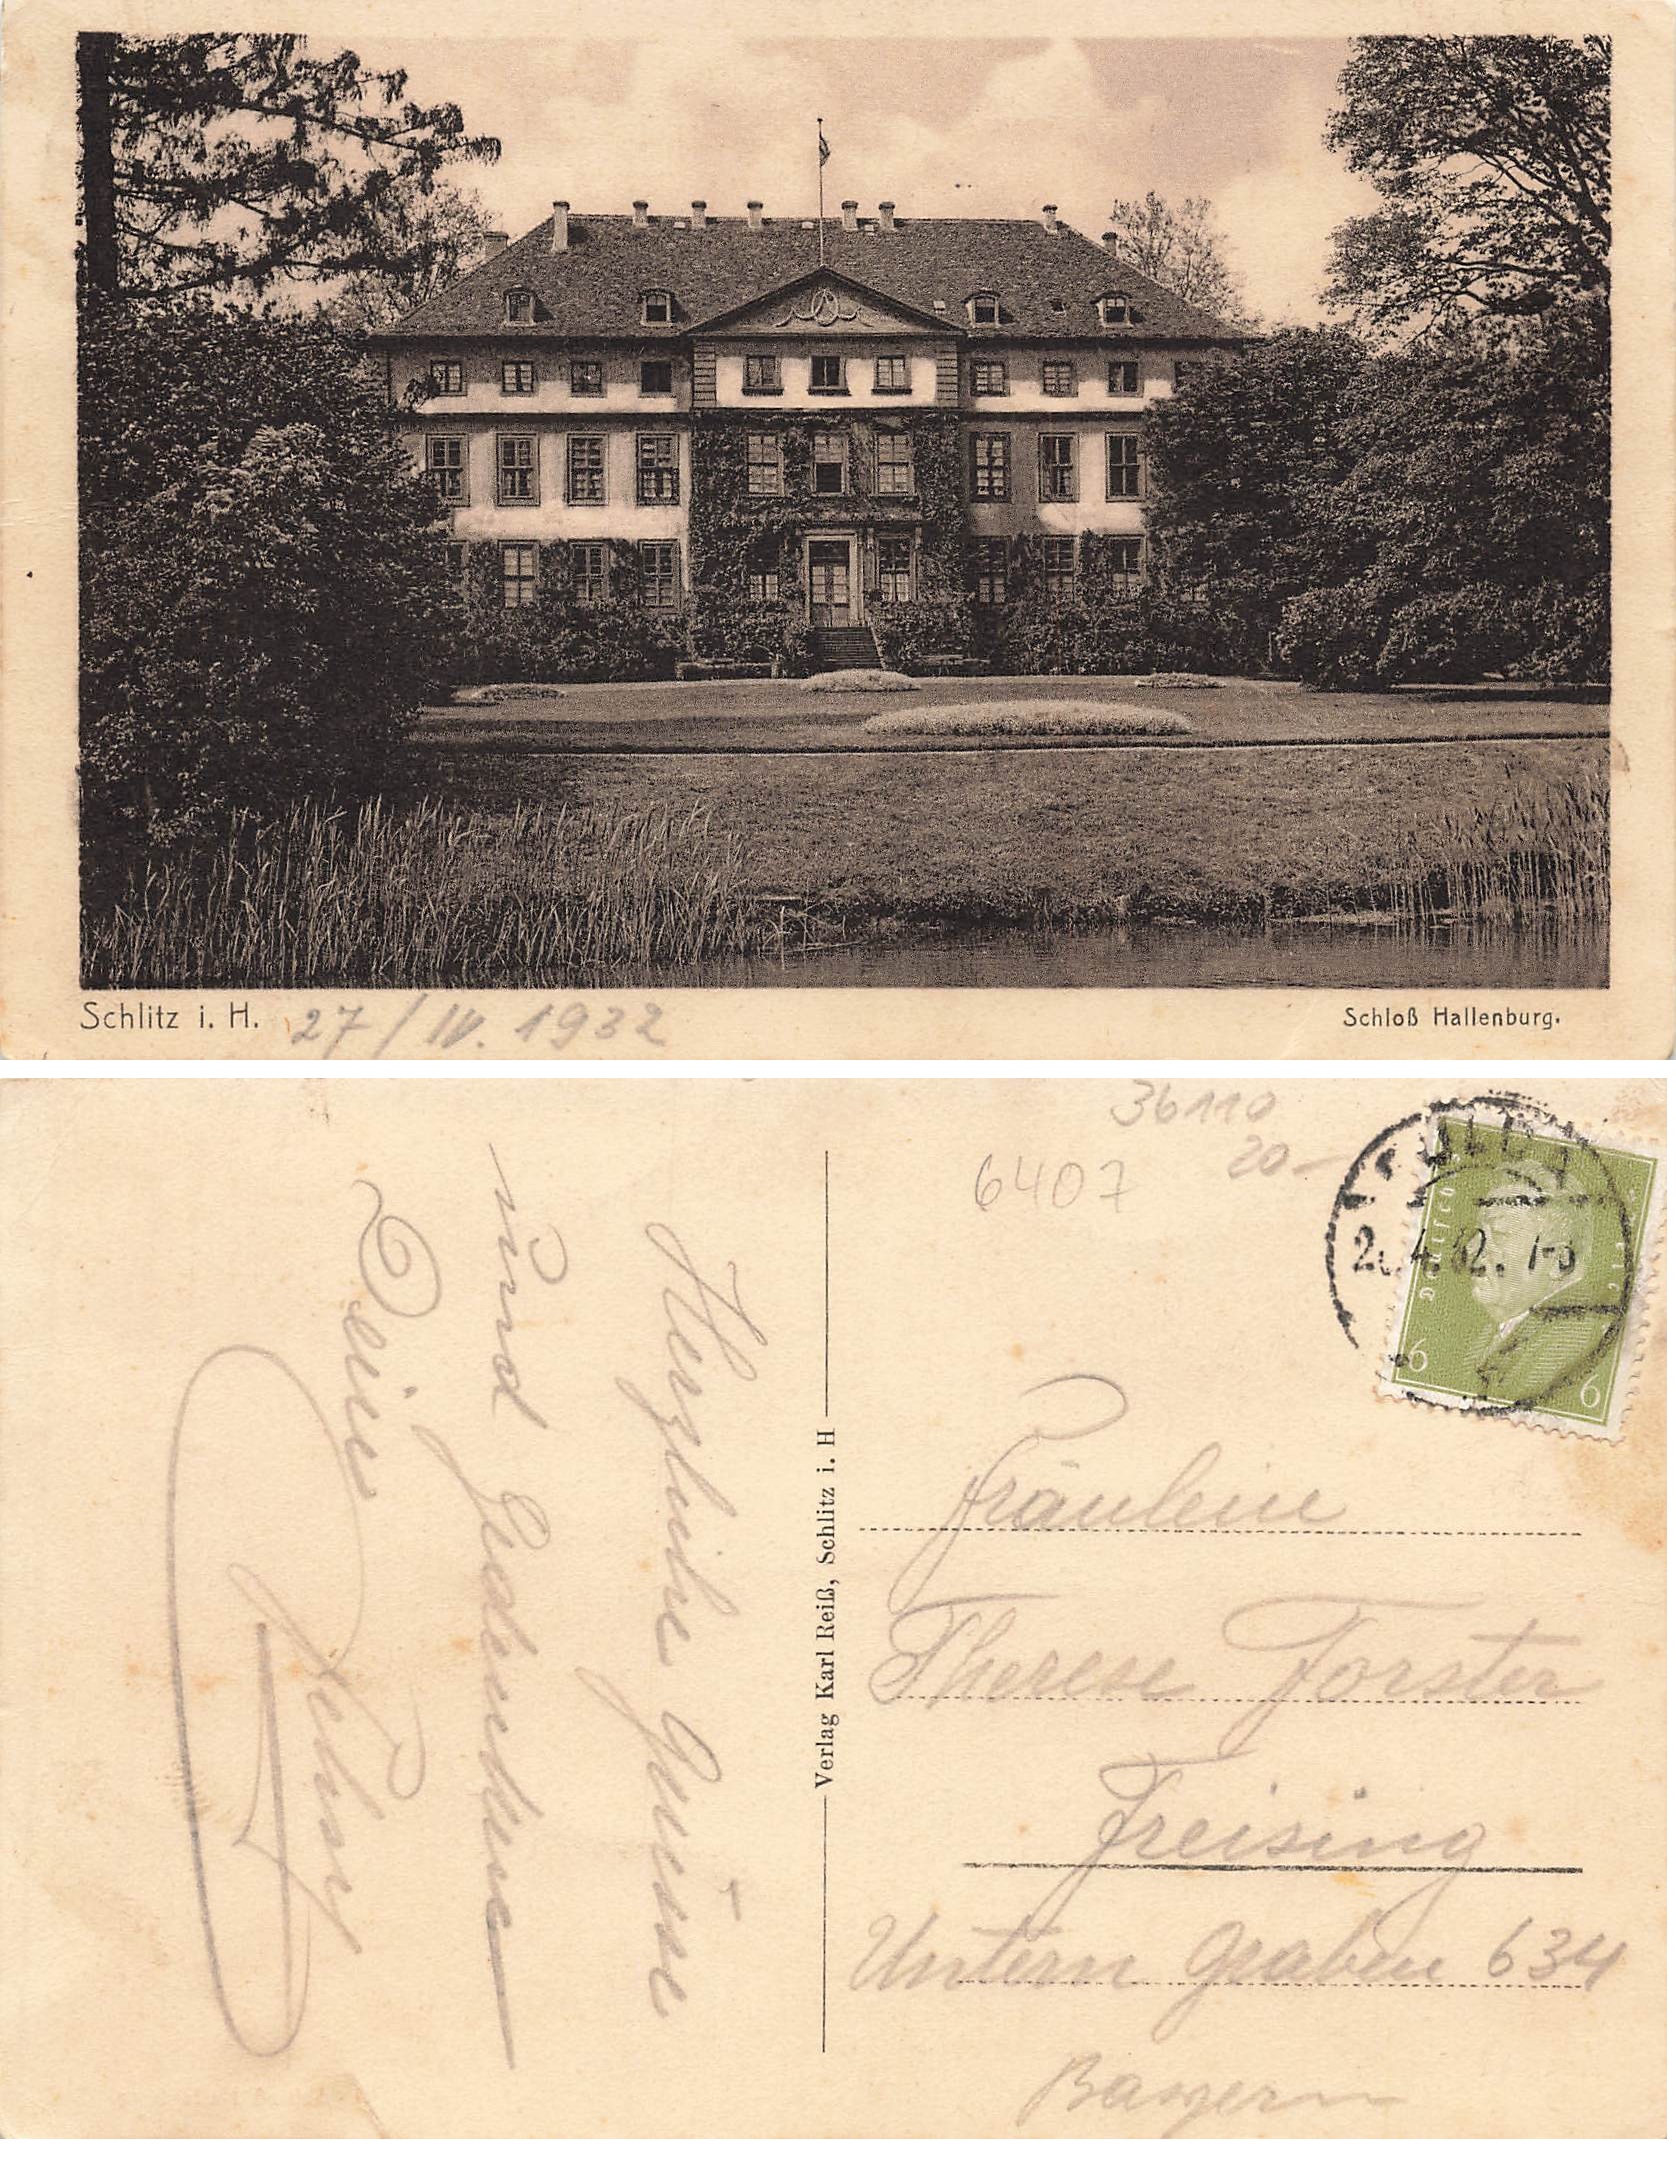 Schlitz i. H.
27/IV. 1932
Schloß Hallenburg.
36110
20-
6407
2 .4.32. 1-
Deutsches
6 6
Herzliche Grüsse
und Gedenken
Deine
Verlag Karl Reiß, Schlitz i. H
Fräulein
Therese Forster
Freising
Untern Graben 634
Bayern